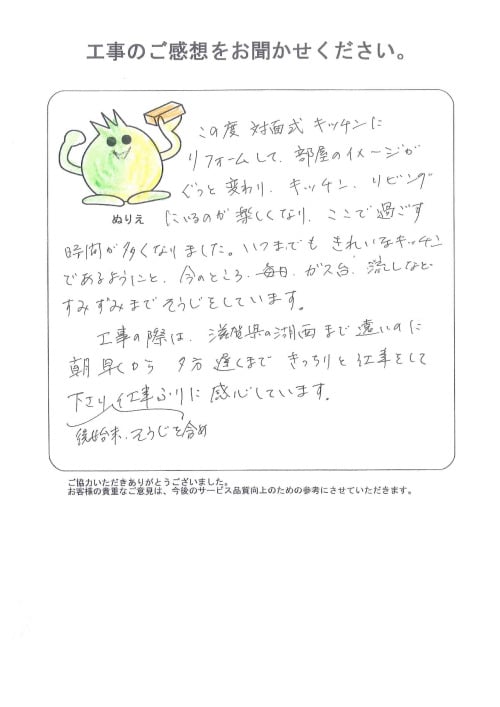 工事のご感想をお聞かせください。
この度 対面式 キッチンに
リフォームして、部屋のイメージが
ぐっと変わり、キッチン、リビング
ぬりえ
にいるのが楽しくなり、ここで過ごす
時間が多くなりました。いつまでも きれいなキッチン
であるようにと、今のところ、毎日、ガス台、流しなど
すみずみまで そうじをしています。
工事の際は、滋賀県の湖西まで遠いのに
朝早くから 夕方遅くまで きっちりと仕事をして
下さり、仕事ぶりに感心しています。
後始末、そうじを含め
ご協力いただきありがとうございました。
お客様の貴重なご意見は、今後のサービス品質向上のための参考にさせていただきます。